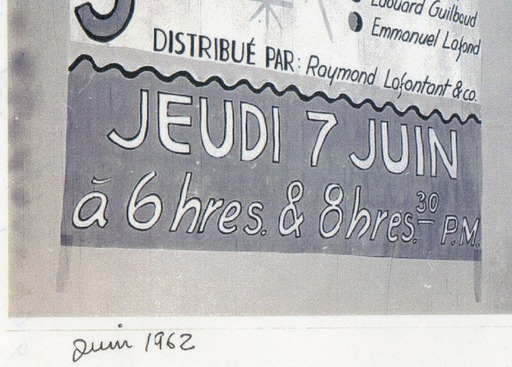 Edouard Guilboud
Emmanuel Lafond
DISTRIBUÉ PAR: Raymond Lafontant & co.
JEUDI 7 JUIN
à 6 hres. & 8 hres. 30 P.M.
Juin 1962